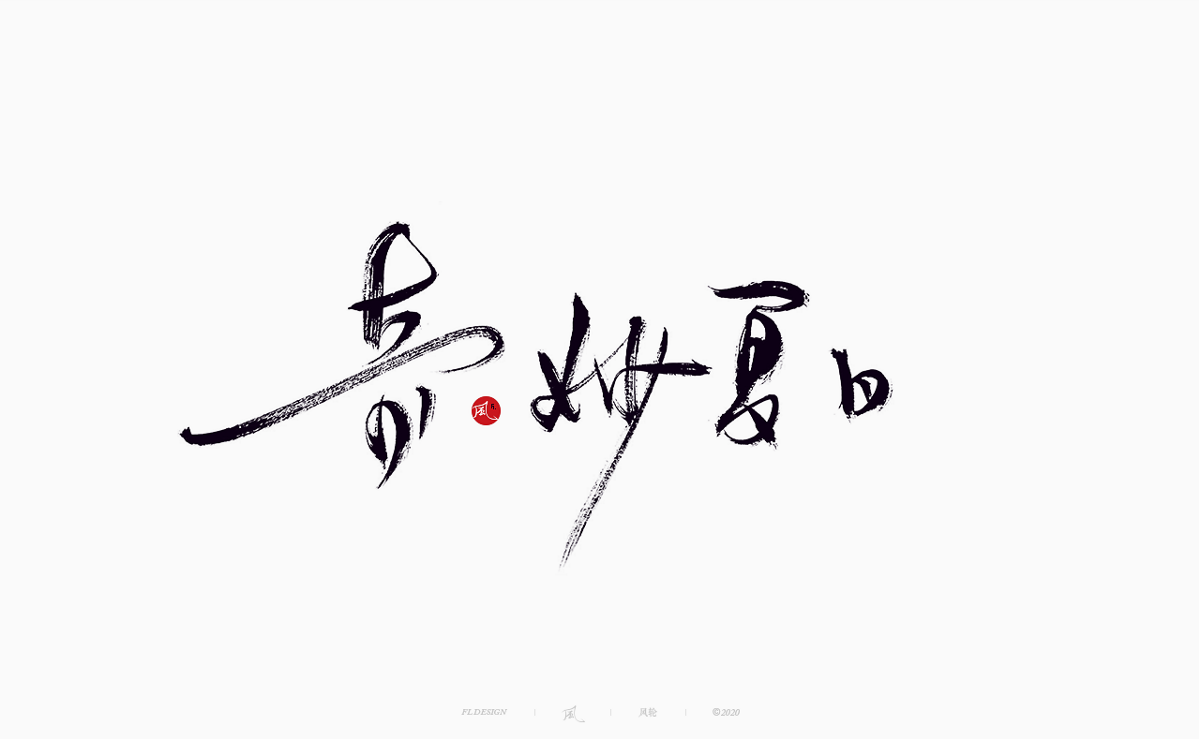 奇妙夏日
風
FL.DESIGN | 風 | 风轮 | ©2020